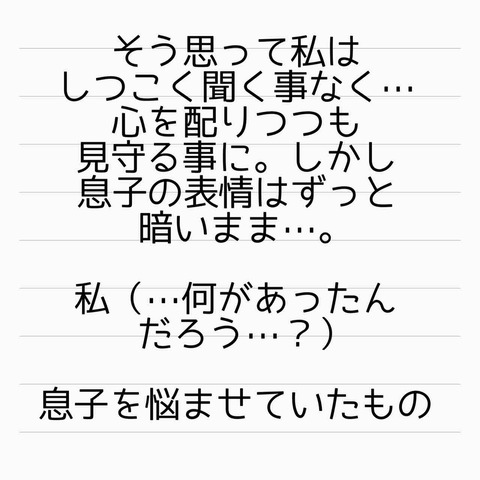 そう思って私は
しつこく聞く事なく…
心を配りつつも
見守る事に。しかし
息子の表情はずっと
暗いまま…。
私（…何があったん
だろう…？）
息子を悩ませていたもの